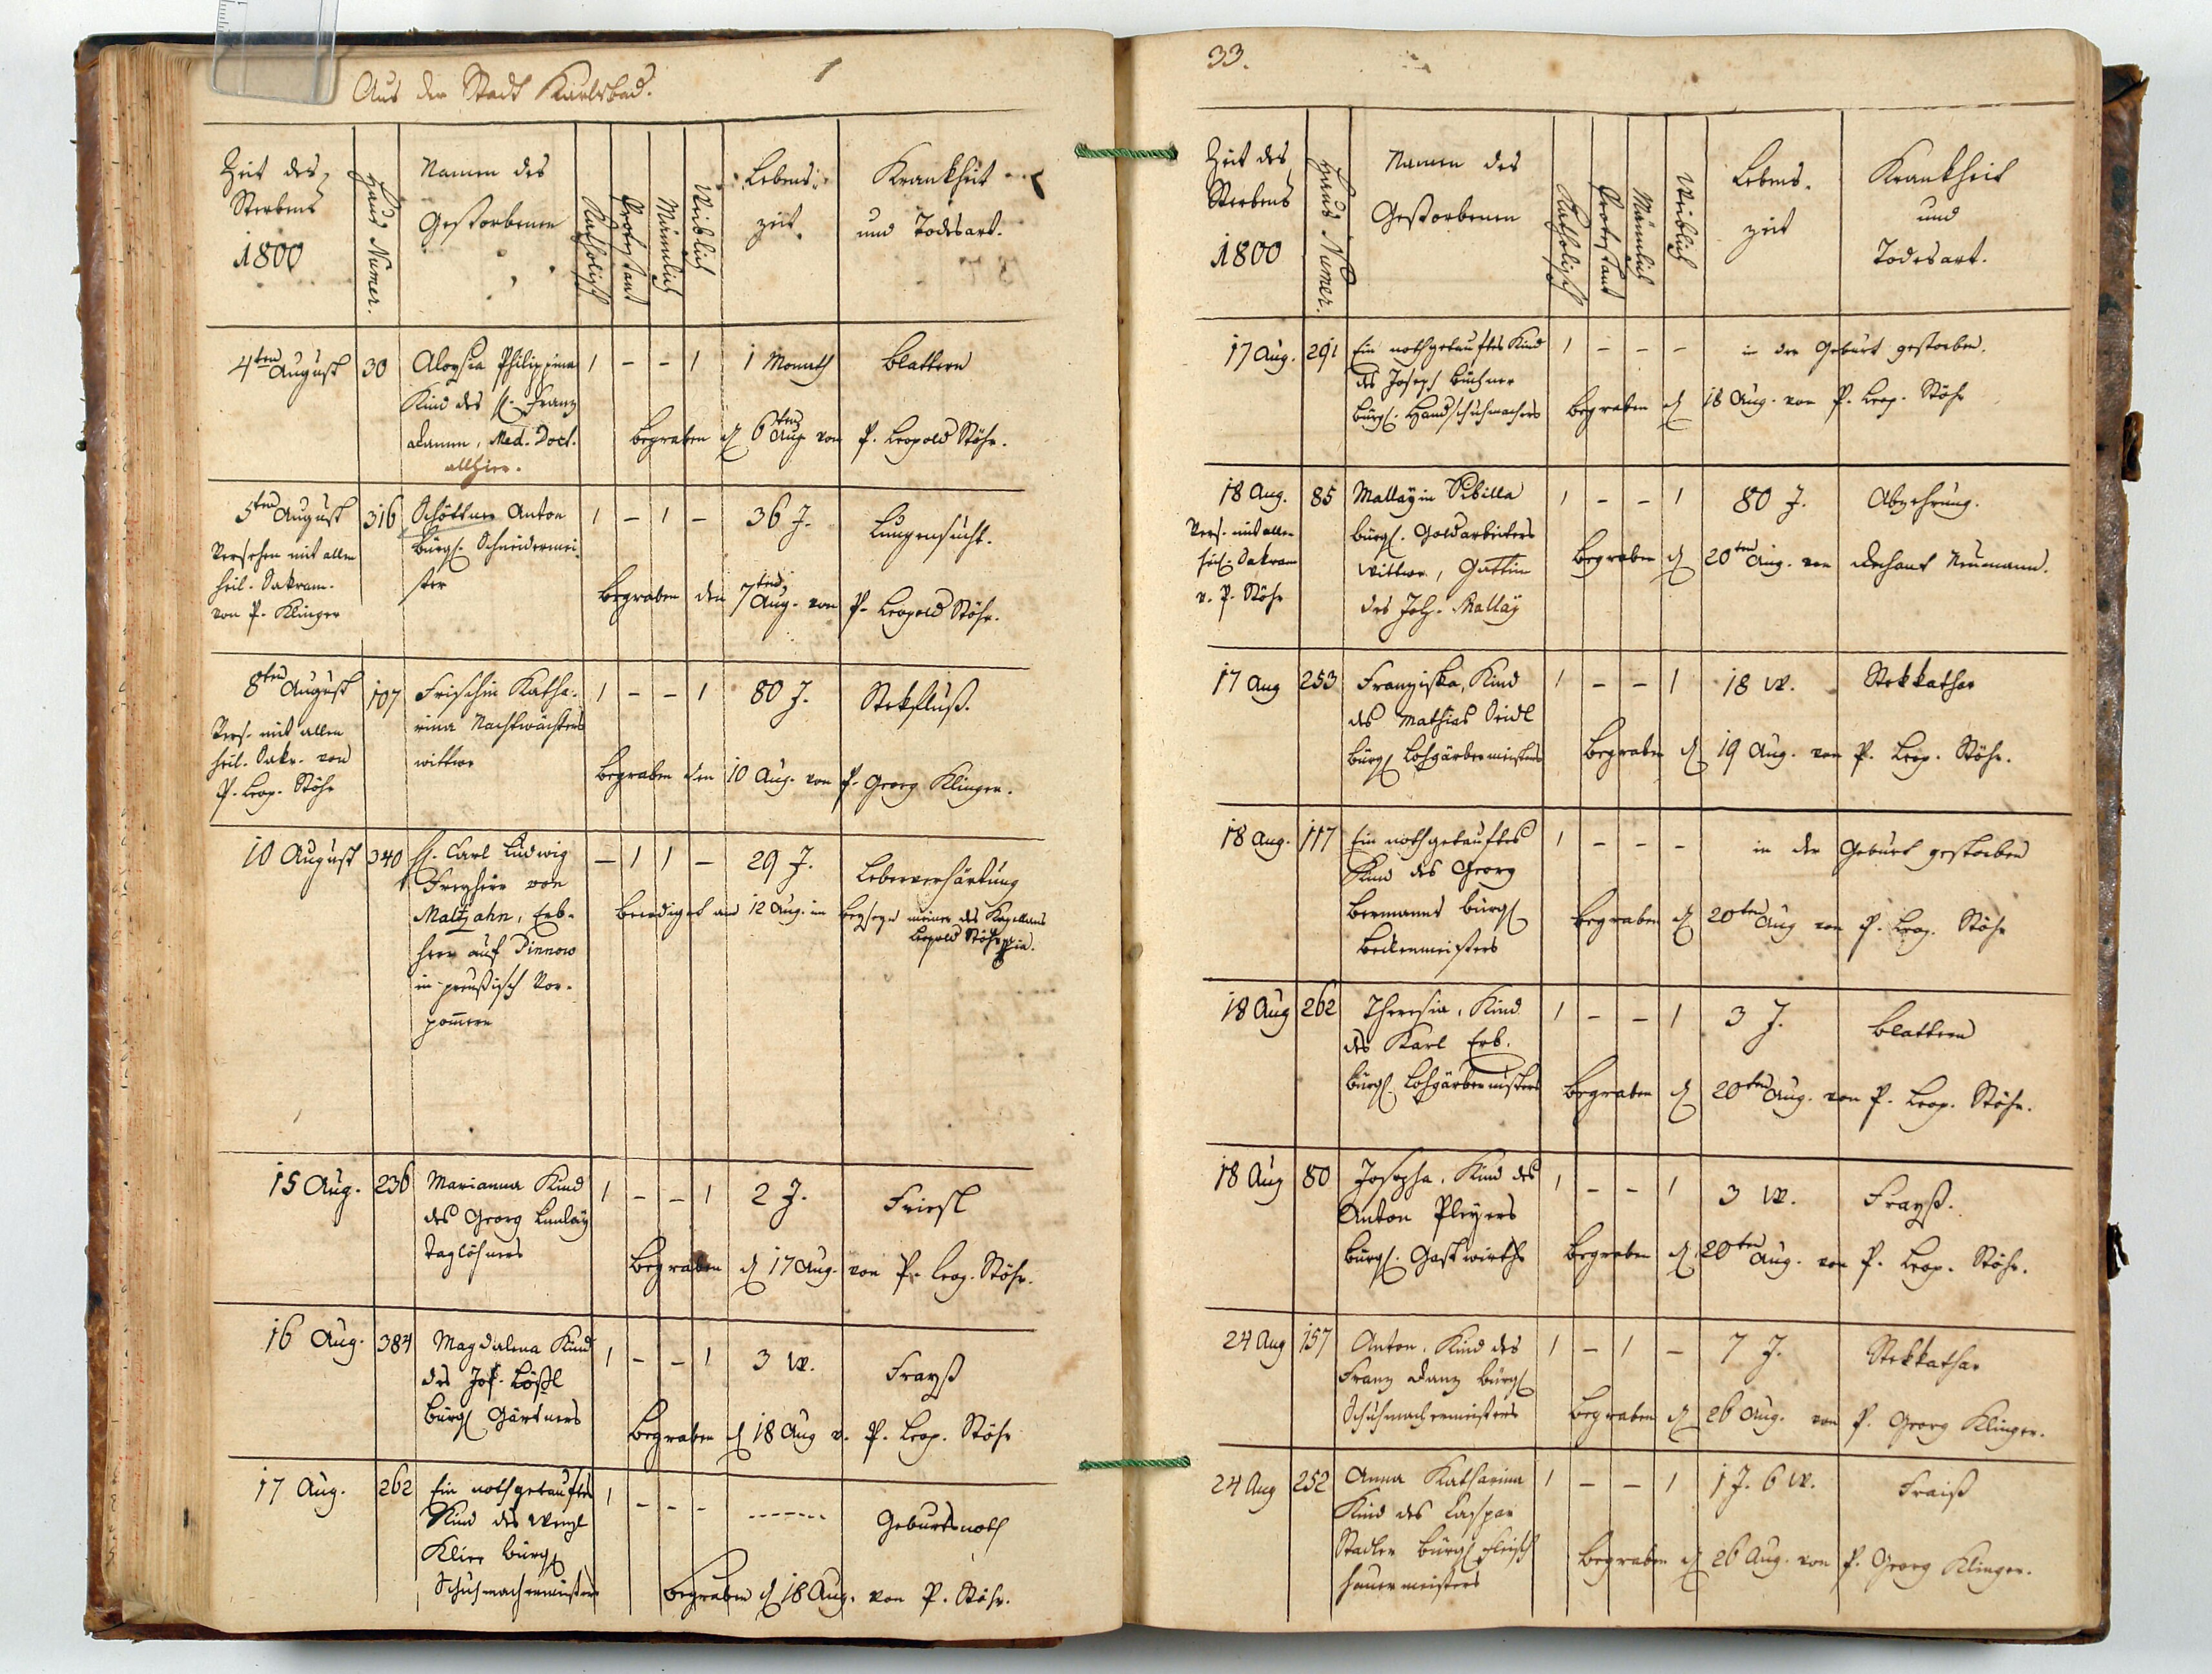 Aus der Stadt Karlsbad.
Zeit des
Sterbens
1800
Haus Numer.
Namen des
Gestorbenen
Katholisch
Protestant
Männlich
Weiblich
Lebens-
zeit.
Krankheit
und Todesart.
4ten August 30 Aloysia Philippina 1 – – 1 1 Monath Blattern
Kind des H. Franz
Damm, Med. Doct.
allhier.
begraben d 6ten Aug von P. Leopold Stöhr.
5ten August 316 Schöttner Anton 1 – 1 – 36 J. Lungensucht.
Versehen mit allen
heil. Sakram.
von P. Klinger
bürgl. Schneidermei
ster
begraben den 7ten Aug. von P. Leopold Stöhr.
8ten August 107 Frischin Katha- 1 – – 1 80 J. Stekfluß.
Vers. mit allen
heil. Sakr. von
P. Leop. Stöhr
rina Nachtwächters
wittwe
begraben den 10 Aug. von P. Georg Klinger.
10 August 340 H. Carl Ludwig – 1 1 – 29 J. Leberverhärtung
Freyherr von
Maltzahn, Erb-
herr auf Pinnow
in preußisch Vor-
pomern
beerdiget am 12 Aug. im Beyseyn meiner des Kapellans
Leopold Stöhr
15 Aug. 236 Marianna Kind 1 – – 1 2 J. Friesl
des Georg
Taglöhners
Begraben d 17 Aug. von P. Leop. Stöhr.
16 Aug. 384 Magdalena Kind 1 – – 1 3 W. Frayß
des Jos. Lößl
bürgl Gärtners
Begraben d 18 Aug v. P. Leop. Stöhr
17 Aug. 262 Ein nothgetauftes 1 – – – Geburtsnoth
Kind des Wenzl
Klier bürgl
Schuhmachermeisters
begraben d 18 Aug. von P. Stöhr.
33.
Zeit des
Sterbens
1800
Haus Numer.
Namen des
Gestorbenen
Katholisch
Protestant
Männlich
Weiblich
Lebens-
zeit
Krankheit
und
Todesart.
17 Aug. 291 Ein nothgetauftes Kind 1 – – – in der Geburt gestorben.
des Joseph Büchner
bürgl. Handschuhmachers
begraben d 18 Aug. von P. Leop. Stöhr
18 Aug. 85 Mallayin Sibilla 1 – – 1 80 J. Abzehrung.
Vers. mit allen
heil. Sakram
v. P. Stöhr
bürgl. Goldarbeiters
wittwe, Gattin
des Joh. Mallay
begraben d 20ten Aug. von Dechant Neumann.
17 Aug 253 Franziska, Kind 1 – – 1 18 W. Stekkathar
des Mathias Seidl
bürgl Lohgärbermeisters
begraben d 19 Aug. von P. Leop. Stöhr.
18 Aug. 117 Ein nothgetauftes 1 – – – in der Geburt gestorben
Kind des Georg
Bermanns bürgl
Beckenmeisters
begraben d 20ten Aug von P. Leop. Stöhr
18 Aug 262 Theresia, Kind 1 – – 1 3 J. Blattern
des Karl Erb.
bürgl. Lohgärbermeisters
begraben d 20ten Aug. von P. Leop. Stöhr.
18 Aug 80 Josepha, Kind des 1 – – 1 3 W. Frayß.
Anton Pleyers
bürgl. Gastwirths
begraben d. 20ten Aug. von P. Leop. Stöhr.
24 Aug 157 Anton, Kind des 1 – 1 – 7 J. Stekkathar
Franz Danz bürgl
Schuhmachermeisters
begraben d 26 Aug. von P. Georg Klinger.
24 Aug 252 Anna Katharina 1 – – 1 1 J. 6 W. Fraiß
Kind des Caspar
Stadler bürgl Fleisch
hauermeisters
begraben d 26 Aug. von P. Georg Klinger.